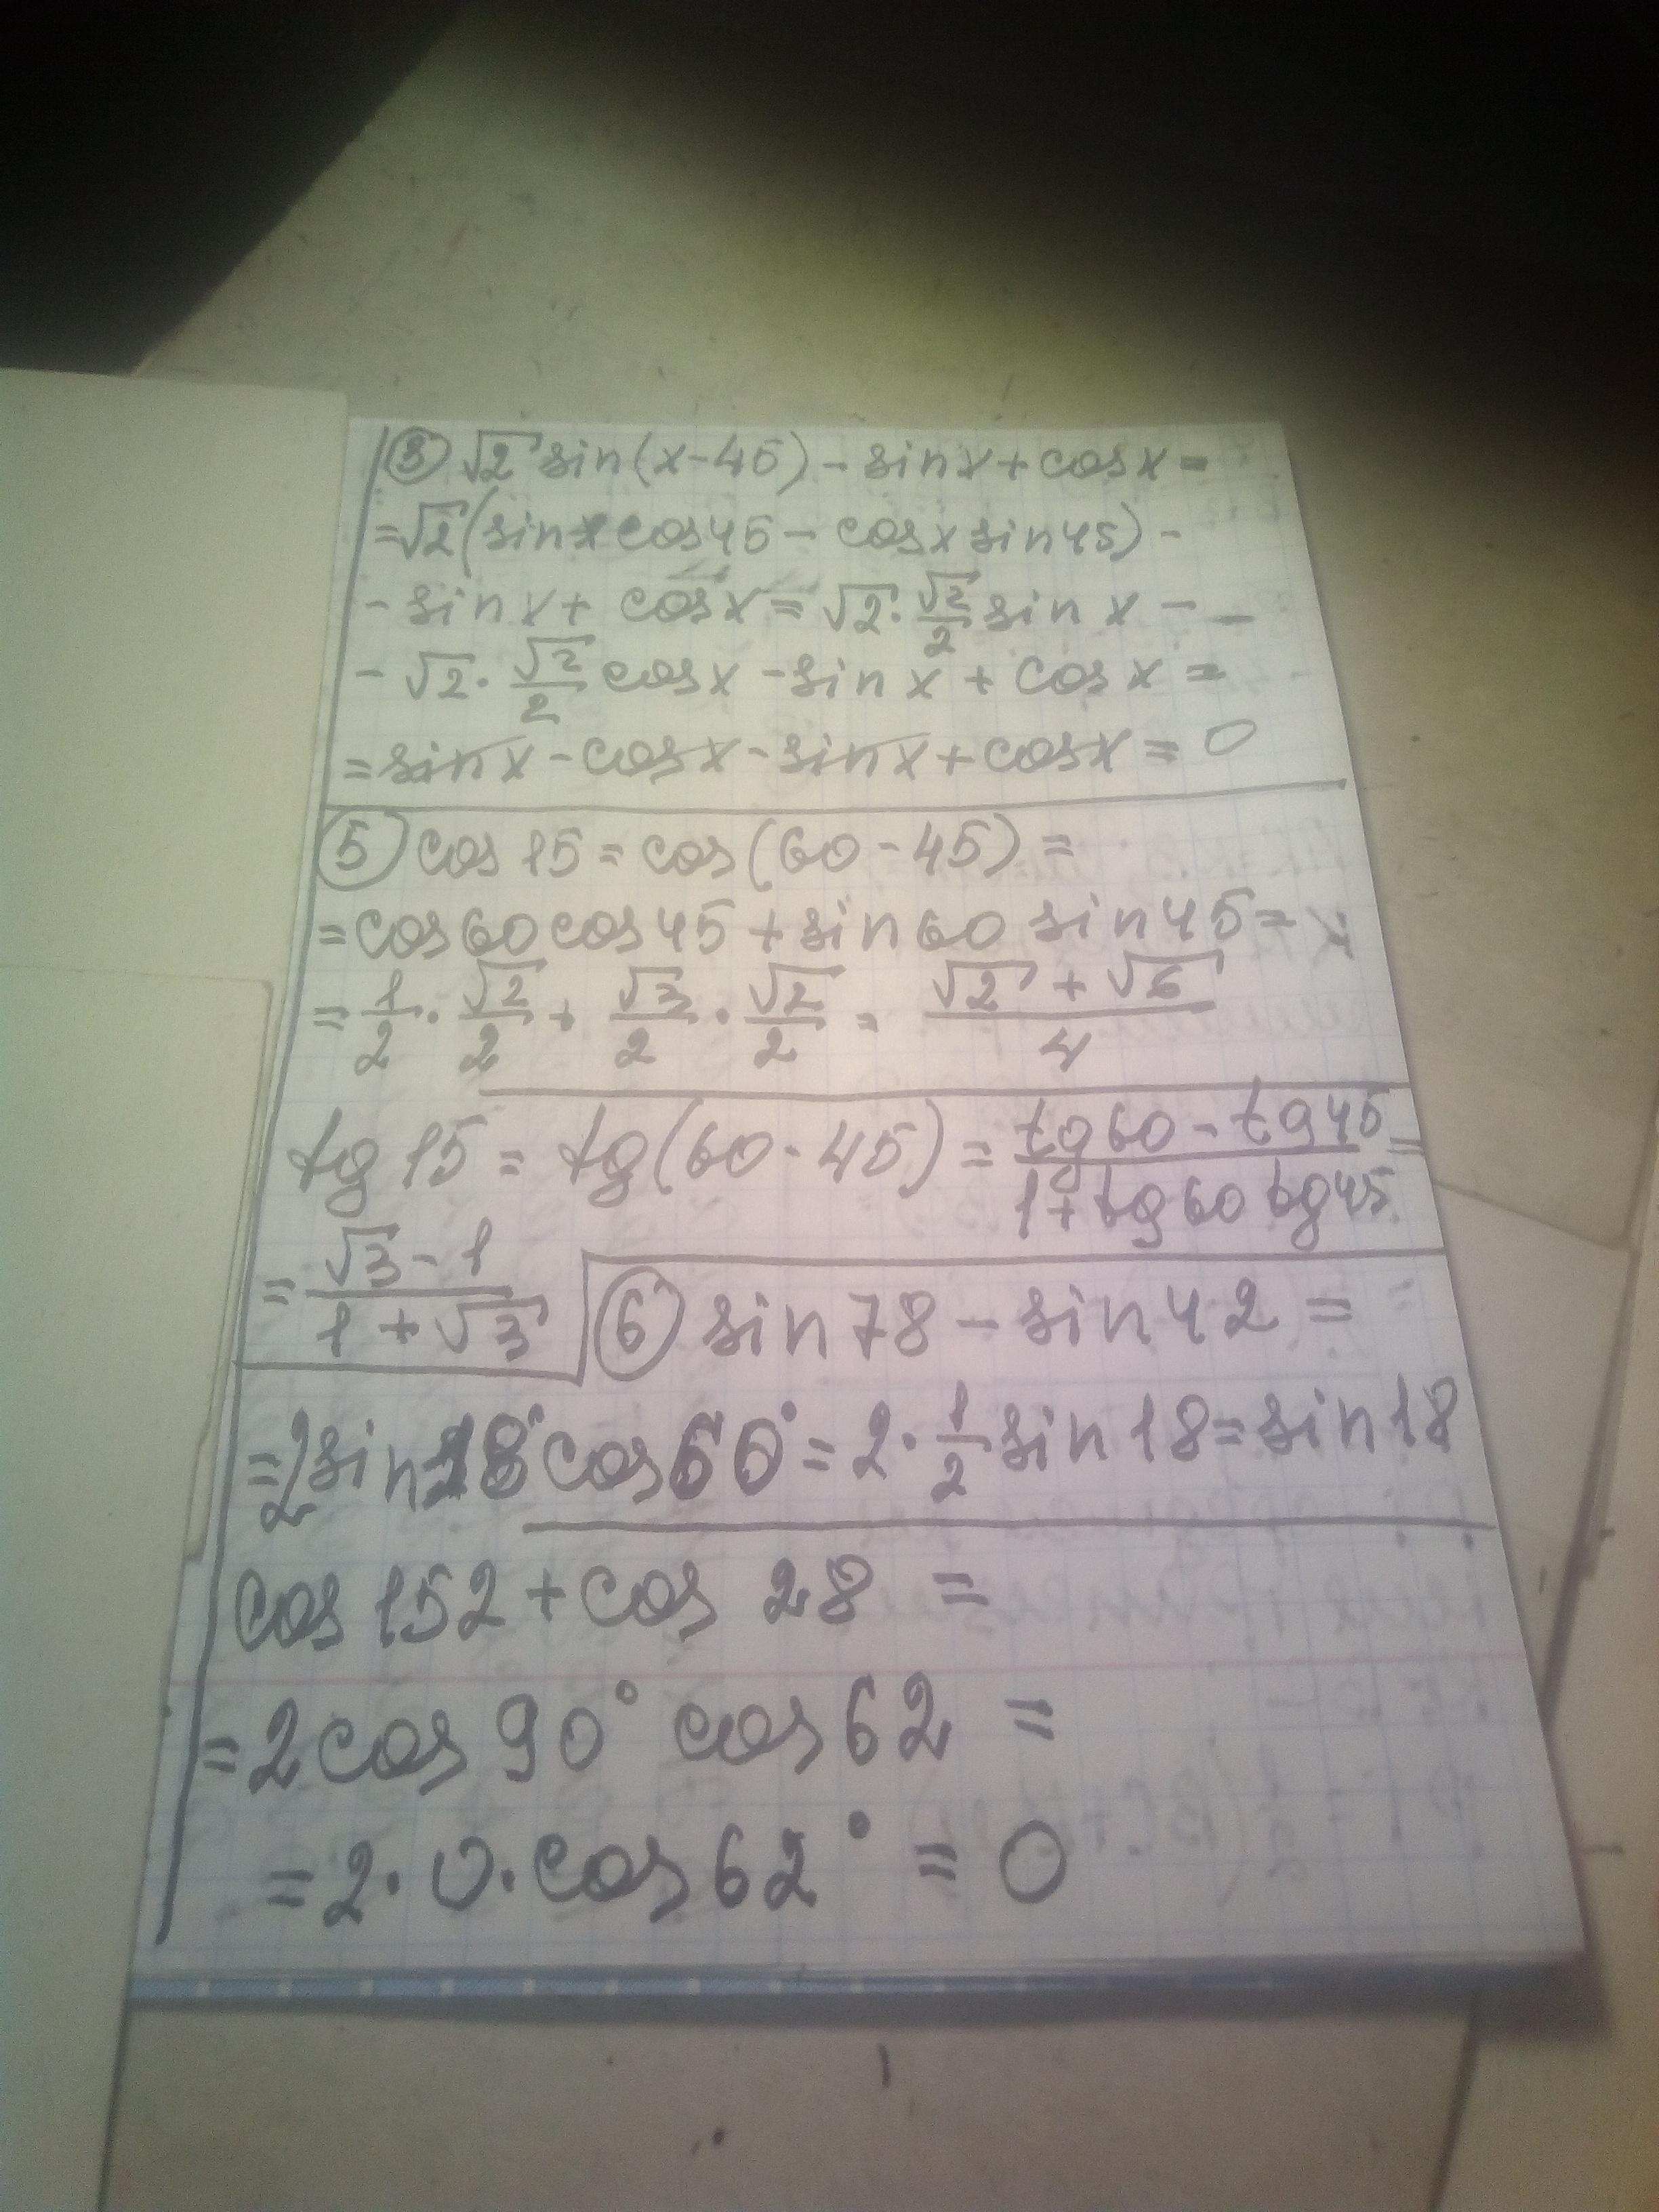 ③ √2 sin(x-45) - sinx + cosx =
= √2 (sinx cos45 - cosx sin45) -
- sinx + cosx = √2 · √2/2 sin x -
- √2 · √2/2 cosx - sin x + cos x =
= sinx - cosx - sinx + cosx = 0
⑤ cos 15 = cos (60 - 45) =
= cos60 cos45 + sin60 sin45 =
= 1/2 · √2/2 + √3/2 · √2/2 = (√2 + √6)/4
tg 15 = tg(60 - 45) = (tg60 - tg45)/(1 + tg60 tg45) =
= (√3 - 1)/(1 + √3)
⑥ sin78 - sin42 =
= 2 sin18° cos60° = 2 · 1/2 sin18 = sin18
cos 152 + cos 28 =
= 2cos 90° cos 62 =
= 2 · 0 · cos 62° = 0